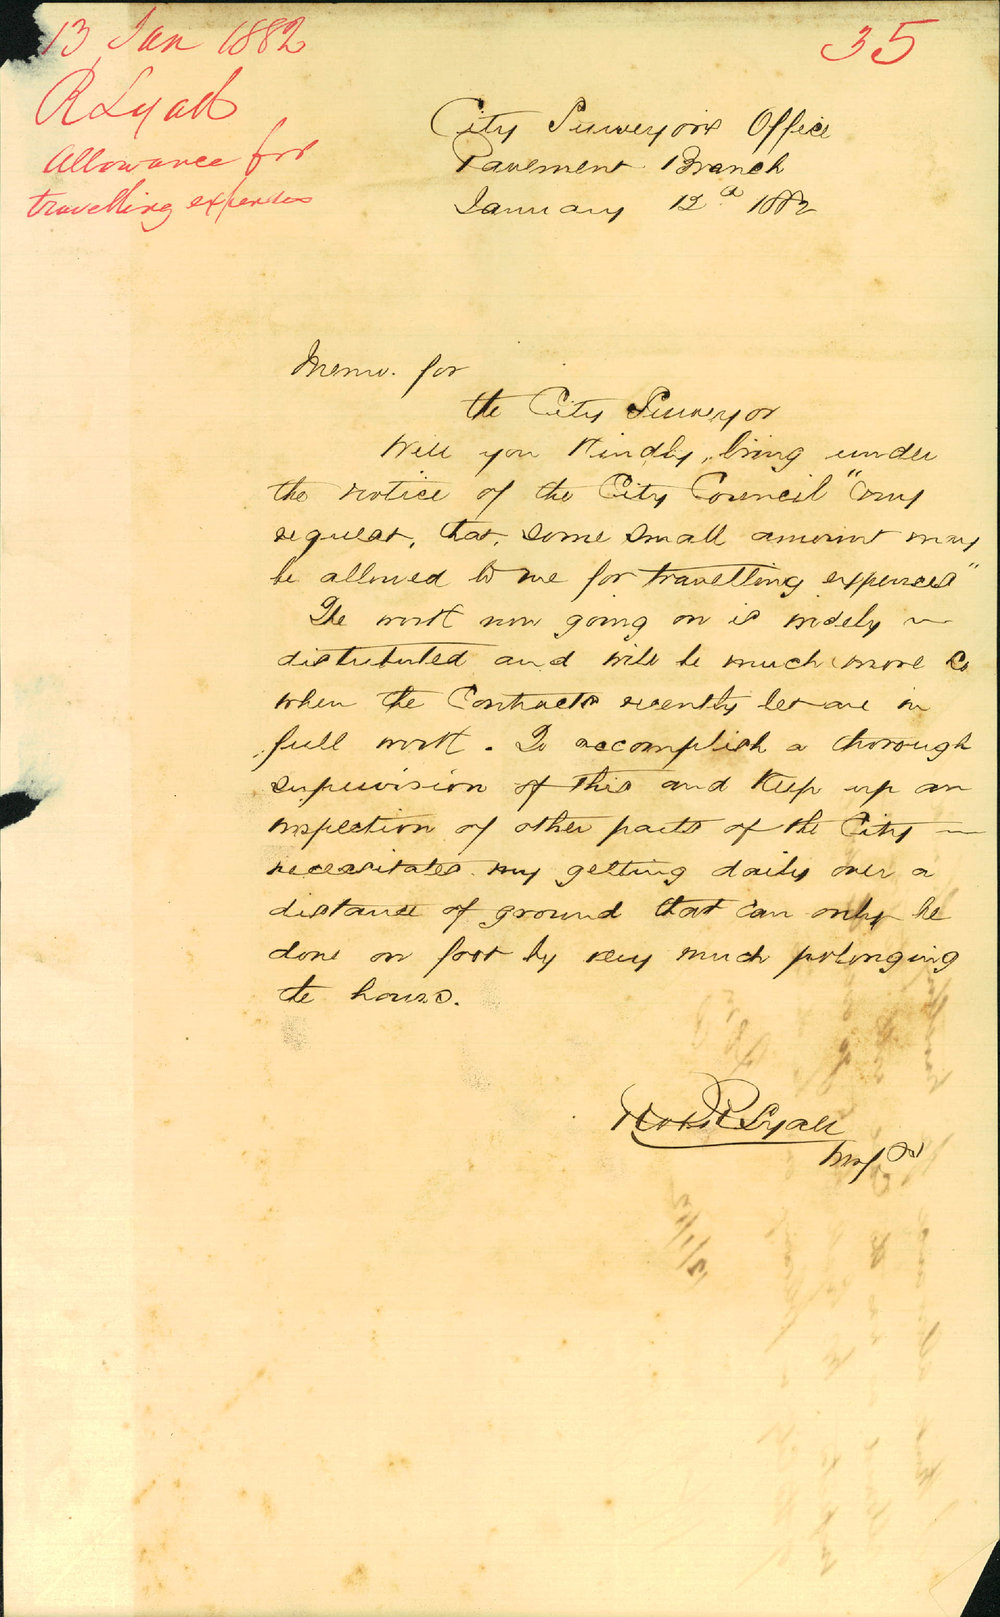 13 Jan 1882
35
R Lyall
Allowance for
travelling expenses
City Surveyors Office
Pavement Branch
January 12th 1882
Memo. for
the City Surveyor
Will you kindly, bring under
the notice of the City Council "my
request, that, some small amount may
be allowed to me for travelling expenses"
The work now going on is widely
distributed and will be much more so
when the Contracts recently let are in
full work. To accomplish a thorough
supervision of this and keep up an
inspection of other parts of the City
necessitates my getting daily over a
distance of ground that can only be
done on foot by very much prolonging
the hours.
Robt Lyall